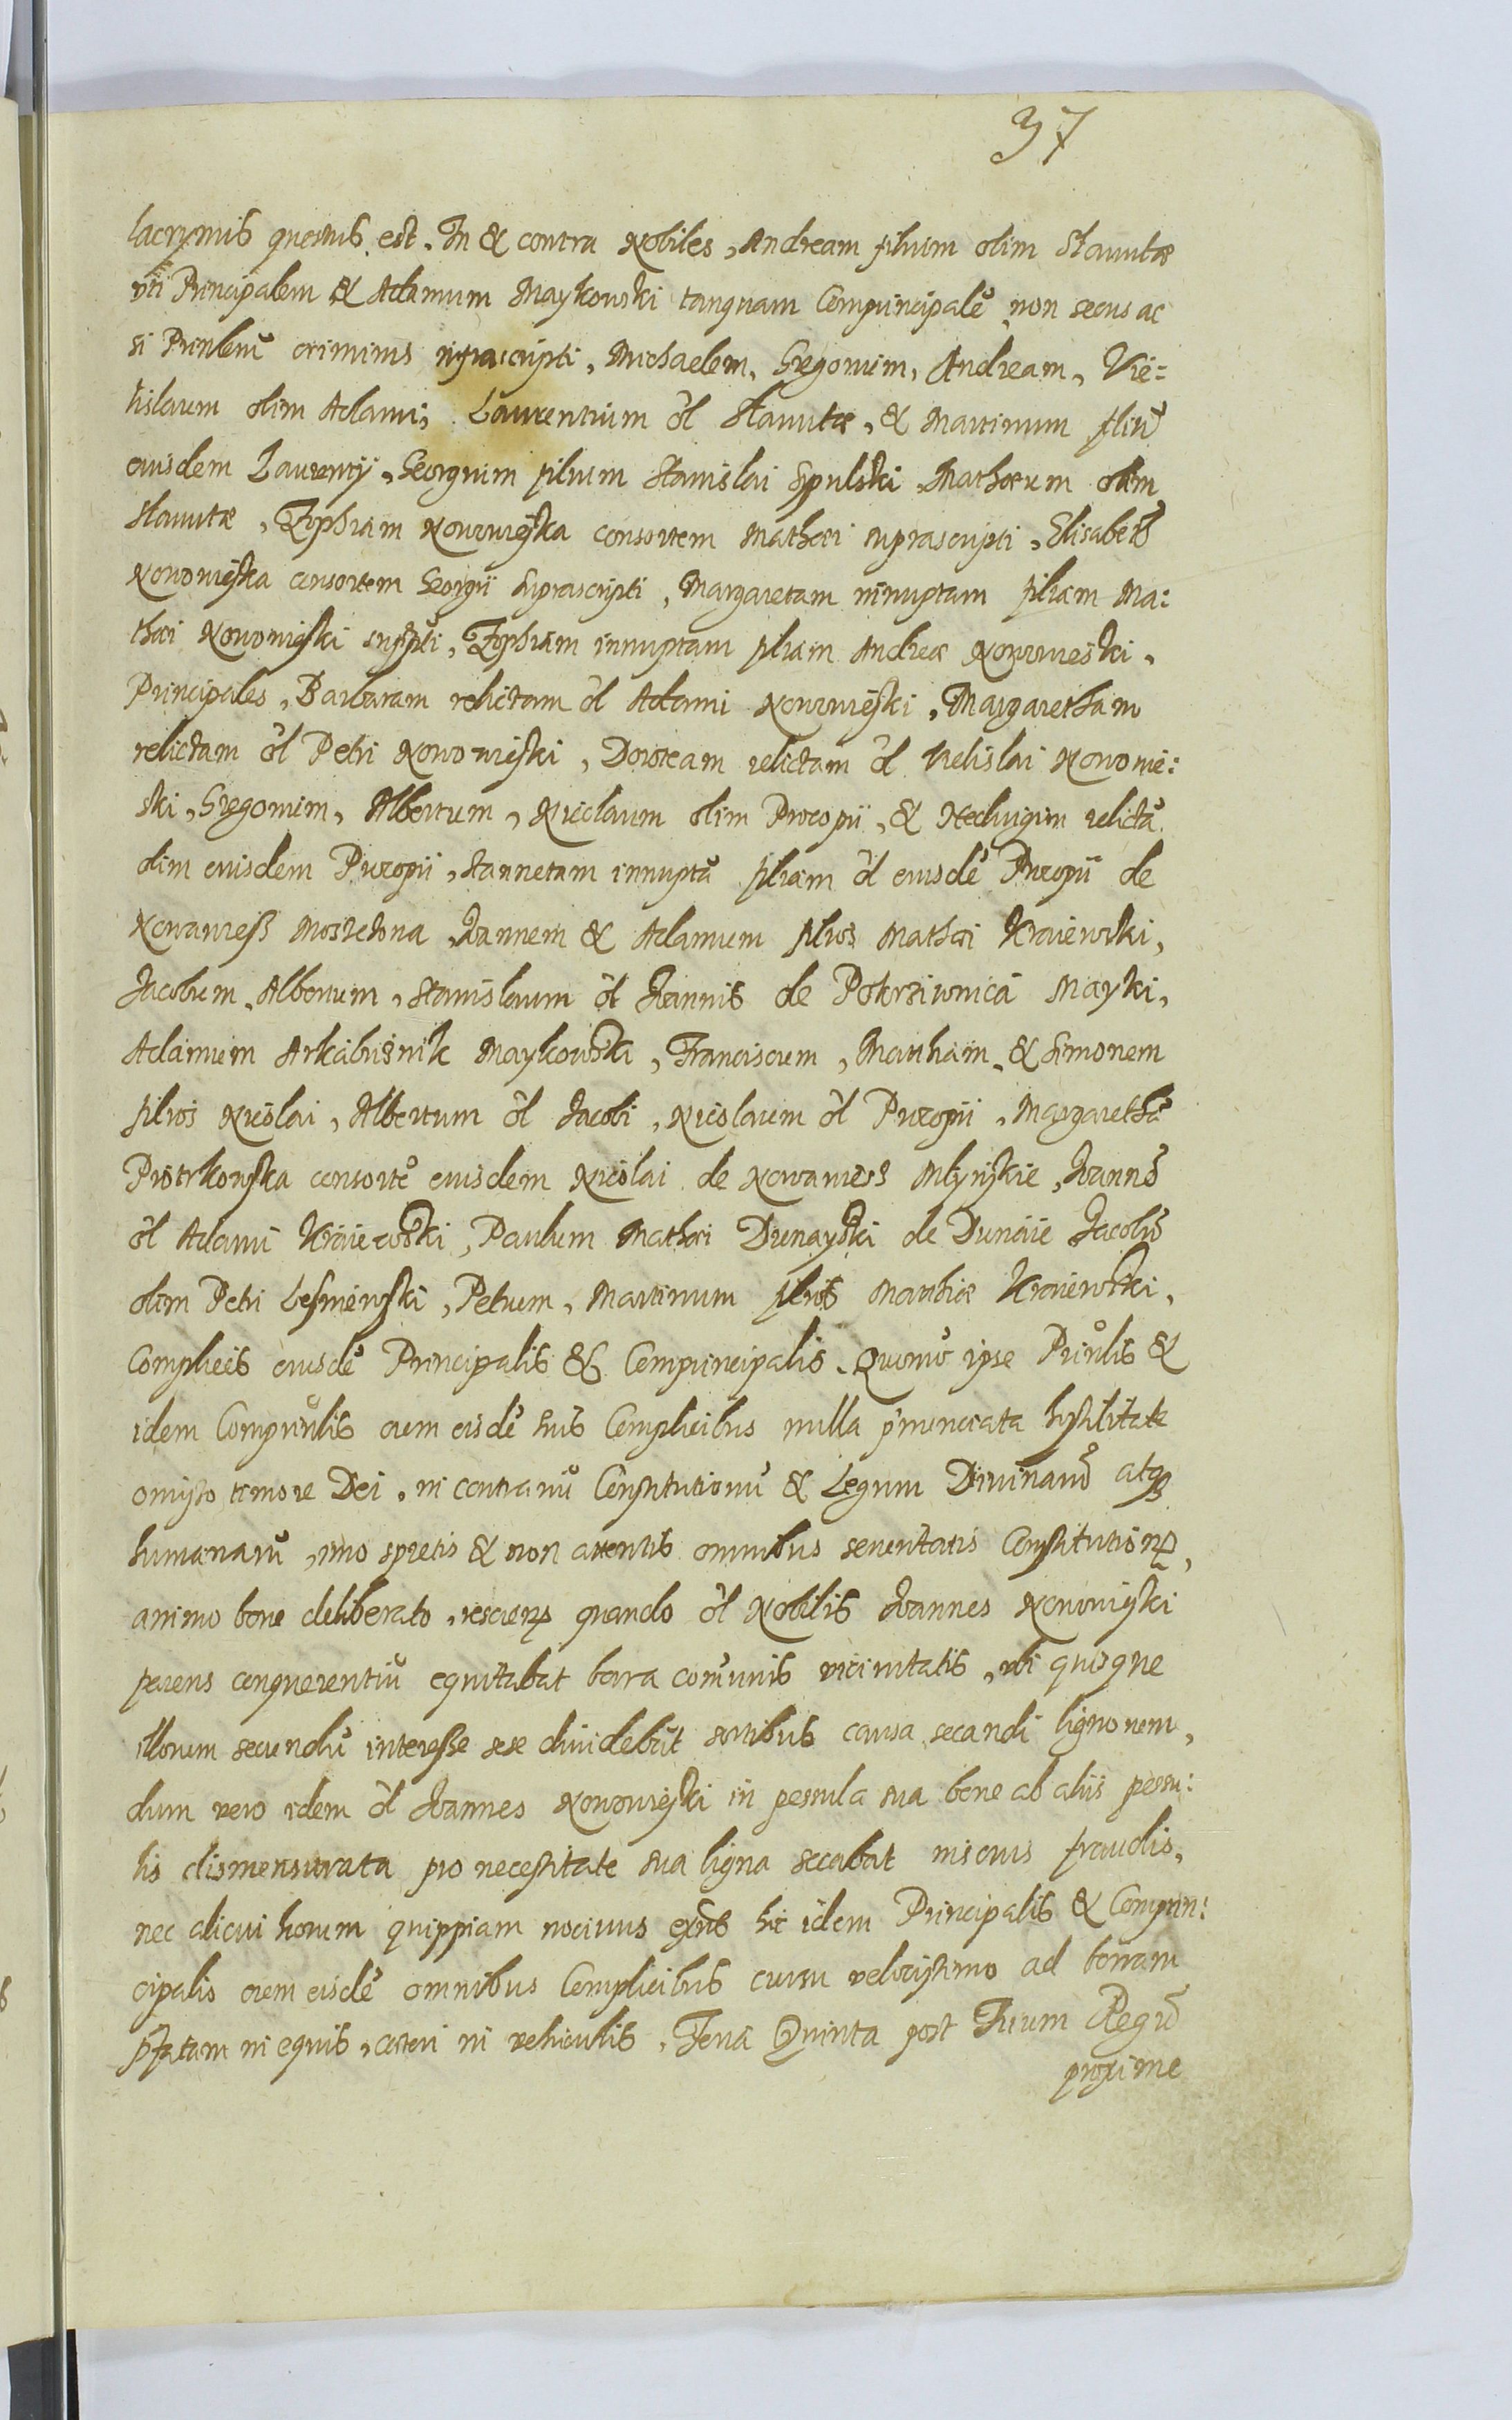 37
lacrymis questus est. In & contra Nobiles, Andream filium olim Slavutæ
uti Principalem & Adamum Maykowski tanquam Comprincipalē non secus ac
si Prinlem̄ criminis infrascripti, Michaelem, Gregorium, Andream, Vie=
lislaum olim Adami, Laurentium ol̄ Slavutæ, & Martinum filiū
eiusdem Laurentij, Georgium filium Stanislai Spulski, Mathæum olim
Slavutæ, Zophiam Nowowieska consortem Mathæi suprascripti, Elisabetħ
Nowowieska consortem Georgii suprascripti, Margaretam innuptam filiam Ma:
thæi Nowowieski supspti, Zophiam innuptam filiam Andreæ Nowowieski,
Principales, Barbaram relictam ol̄ Adami Nowowieski, Margaretham
relictam ol̄ Petri Nowowieski, Doroteam relictam ol̄ Vielislai Nowowie:
ski, Gregorium, Albertum, Nicolaum olim Procopii, & Hedvigim relictā
olim eiusdem Procopii, Iannetam innuptā filiam ol̄ eiusdē Procopii de
Nowawiess Moszczona Ioannem & Adamum filios Mathæi Kraiewski,
Iacobum, Albertum, Stanislaum ol̄ Ioannis de Pokrziwnica Mayki,
Adamum Arkabuśnik Maykowski, Franciscum, Matthiam, & Simonem
filios Nicolai, Albertum ol̄ Iacobi, Nicolaum ol̄ Procopii, Margarethā
Piotrkowska consortē eiusdem Nicolai de Nowawiess Młynskie, Ioannē
ol̄ Adami Kraiewski, Paulum Mathæi Dunayski de Dunaie Iacobū
olim Petri Lesniewski, Petrum, Martinum filios Matthiæ Kraiewski,
Complices eiusdē Principalis & Comprincipalis. Quomō ipse Prinlis &
idem Comprinlis cum eisdē suis Complicibus nulla prnunciata hostilitate
omisso timore Dei, in contrariū Constitutionū & Legum Divinarū atq3
humanarū, imo spretis & non attentis omnibus severitatis Constitutionū,
animo bene deliberato, quando ol̄ Nobilis Ioannes Nowowieski
parens conquerentiū equitabat borra com̄unis vicinitatis, ubi quisque
illorum secundū interesse sese dividebāt sortibus causa secandi lignorum,
dum vero idem ol̄ Ioannes Nowowieski in pessula sua bene ab aliis pessu:
lis dismensurata pro necessitate sua ligna secabat nescius fraudis,
nec alicui horum quippiam nocivus exn̄s hic idem Principalis & Comprin:
cipalis cum eisdē omnibus Complicibus cursu velocissimo ad borram
pfatam in equis, cæteri in vehiculis, Feria Quinta post Trium Regū
proxime